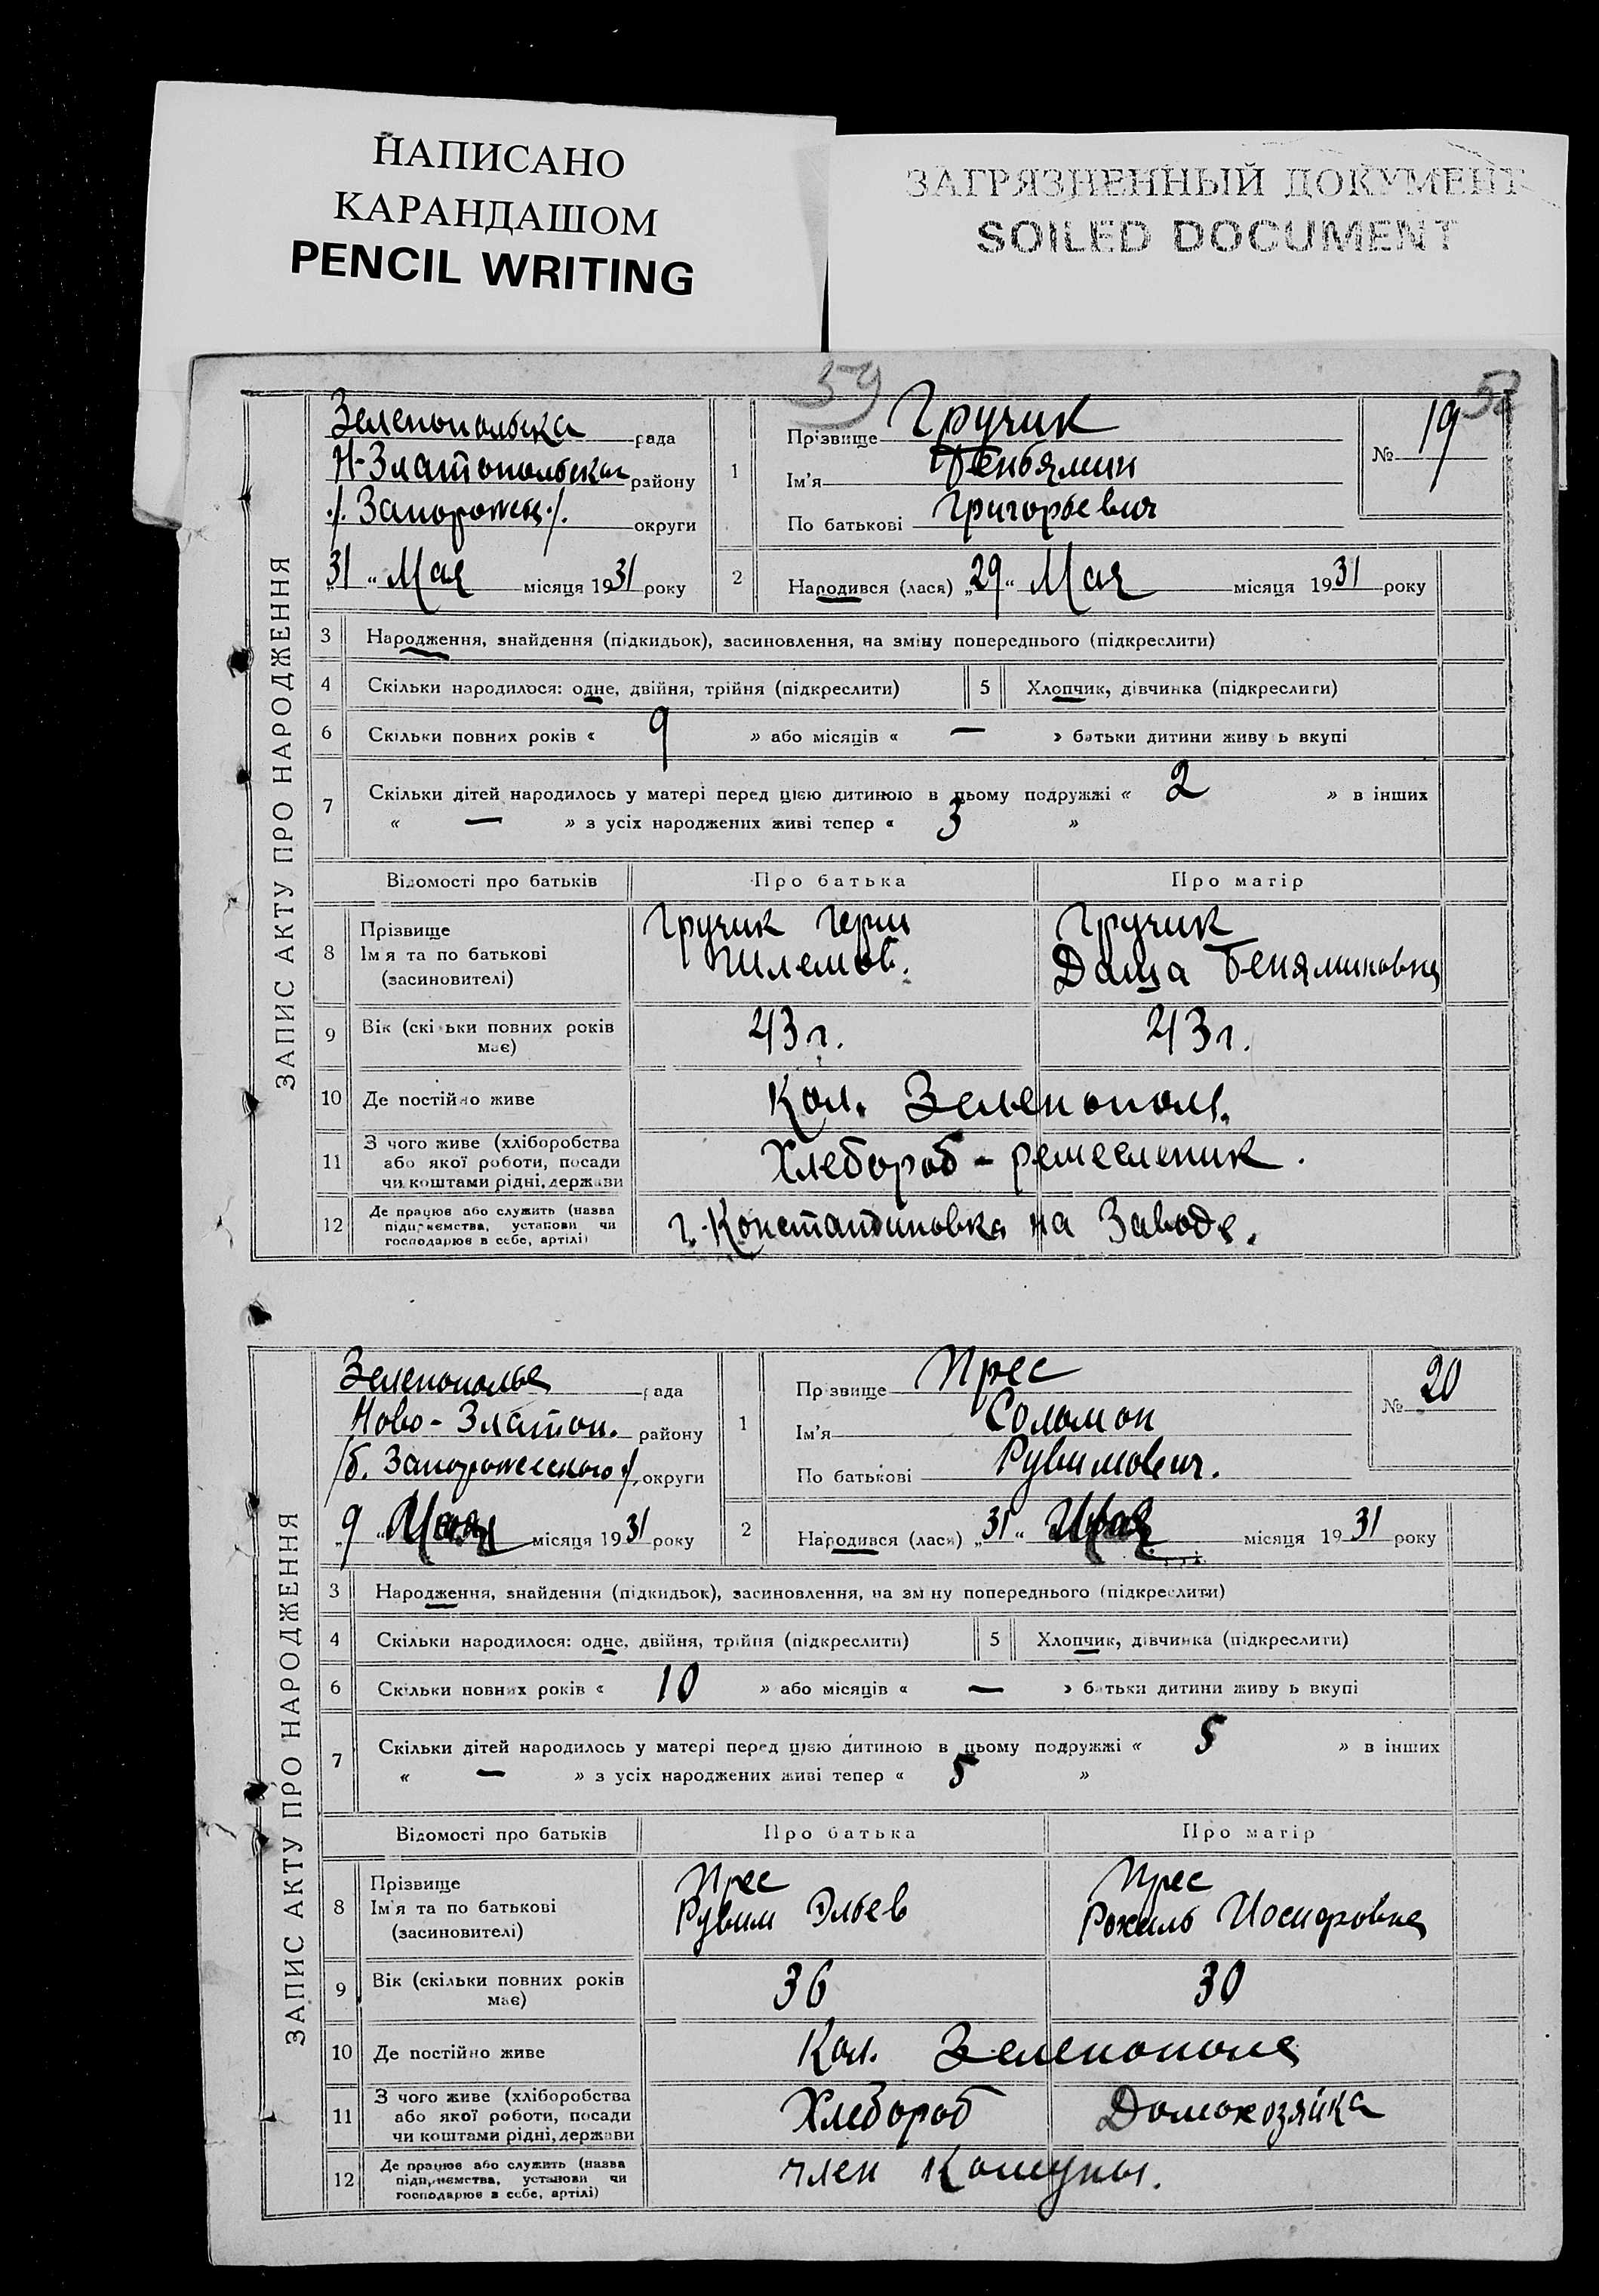 НАПИСАНО
КАРАНДАШОМ
PENCIL WRITING
ЗАГРЯЗНЕННЫЙ ДОКУМЕНТ
SOILED DOCUMENT
59
52
ЗАПИС АКТУ ПРО НАРОДЖЕННЯ
Зеленопольска рада
Н-Златопольска району
./. Запорожец ./. округи
„31“ Мая місяця 1931 року
1
Прізвище Гручик
Ім'я Бенъямин
По батькові Григорьевич
№ 19
2
Народився (лася) „29“ Мая місяця 1931 року
3 Народження, знайдення (підкидьок), засиновлення, на зміну попереднього (підкреслити)
4 Скільки народилося: одне, двійня, трійня (підкреслити) 5 Хлопчик, дівчинка (підкреслити)
6 Скільки повних років « 9 » або місяців « — » батьки дитини живуть вкупі
7 Скільки дітей народилось у матері перед цією дитиною в цьому подружжі « 2 » в інших
« — » з усіх народжених живі тепер « 3 »
Відомості про батьків Про батька Про матір
8 Прізвище Гручик Герш Гручик
Ім'я та по батькові Шлемов. Даша Беняминовна
(засиновителі)
9 Вік (скільки повних років має) 43 г. 43 г.
10 Де постійно живе Кол. Зеленополь.
11 З чого живе (хліборобства
або якої роботи, посади Хлебороб - ремесленик.
чи коштами рідні, держави
12 Де працює або служить (назва
підприємства, установи чи г. Константиновка на Заводе.
господарює в себе, артілі)
ЗАПИС АКТУ ПРО НАРОДЖЕННЯ
Зеленополье рада
Ново-Златоп. району
/б. Запорожского/. округи
„9“ місяця 1931 року
1
Прізвище Прес
Ім'я Соломон
По батькові Рувимович.
№ 20
2
Народився (лася) „31“ Мая місяця 1931 року
3 Народження, знайдення (підкидьок), засиновлення, на зміну попереднього (підкреслити)
4 Скільки народилося: одне, двійня, трійня (підкреслити) 5 Хлопчик, дівчинка (підкреслити)
6 Скільки повних років « 10 » або місяців « — » батьки дитини живуть вкупі
7 Скільки дітей народилось у матері перед цією дитиною в цьому подружжі « 5 » в інших
« — » з усіх народжених живі тепер « 5 »
Відомості про батьків Про батька Про матір
8 Прізвище Прес Прес
Ім'я та по батькові Рувим Эльев Рохиль Иосифовна
(засиновителі)
9 Вік (скільки повних років має) 36 30
10 Де постійно живе Кол. Зеленополе
11 З чого живе (хліборобства
або якої роботи, посади Хлебороб Домохозяйка
чи коштами рідні, держави
12 Де працює або служить (назва
підприємства, установи чи член Комуны.
господарює в себе, артілі)